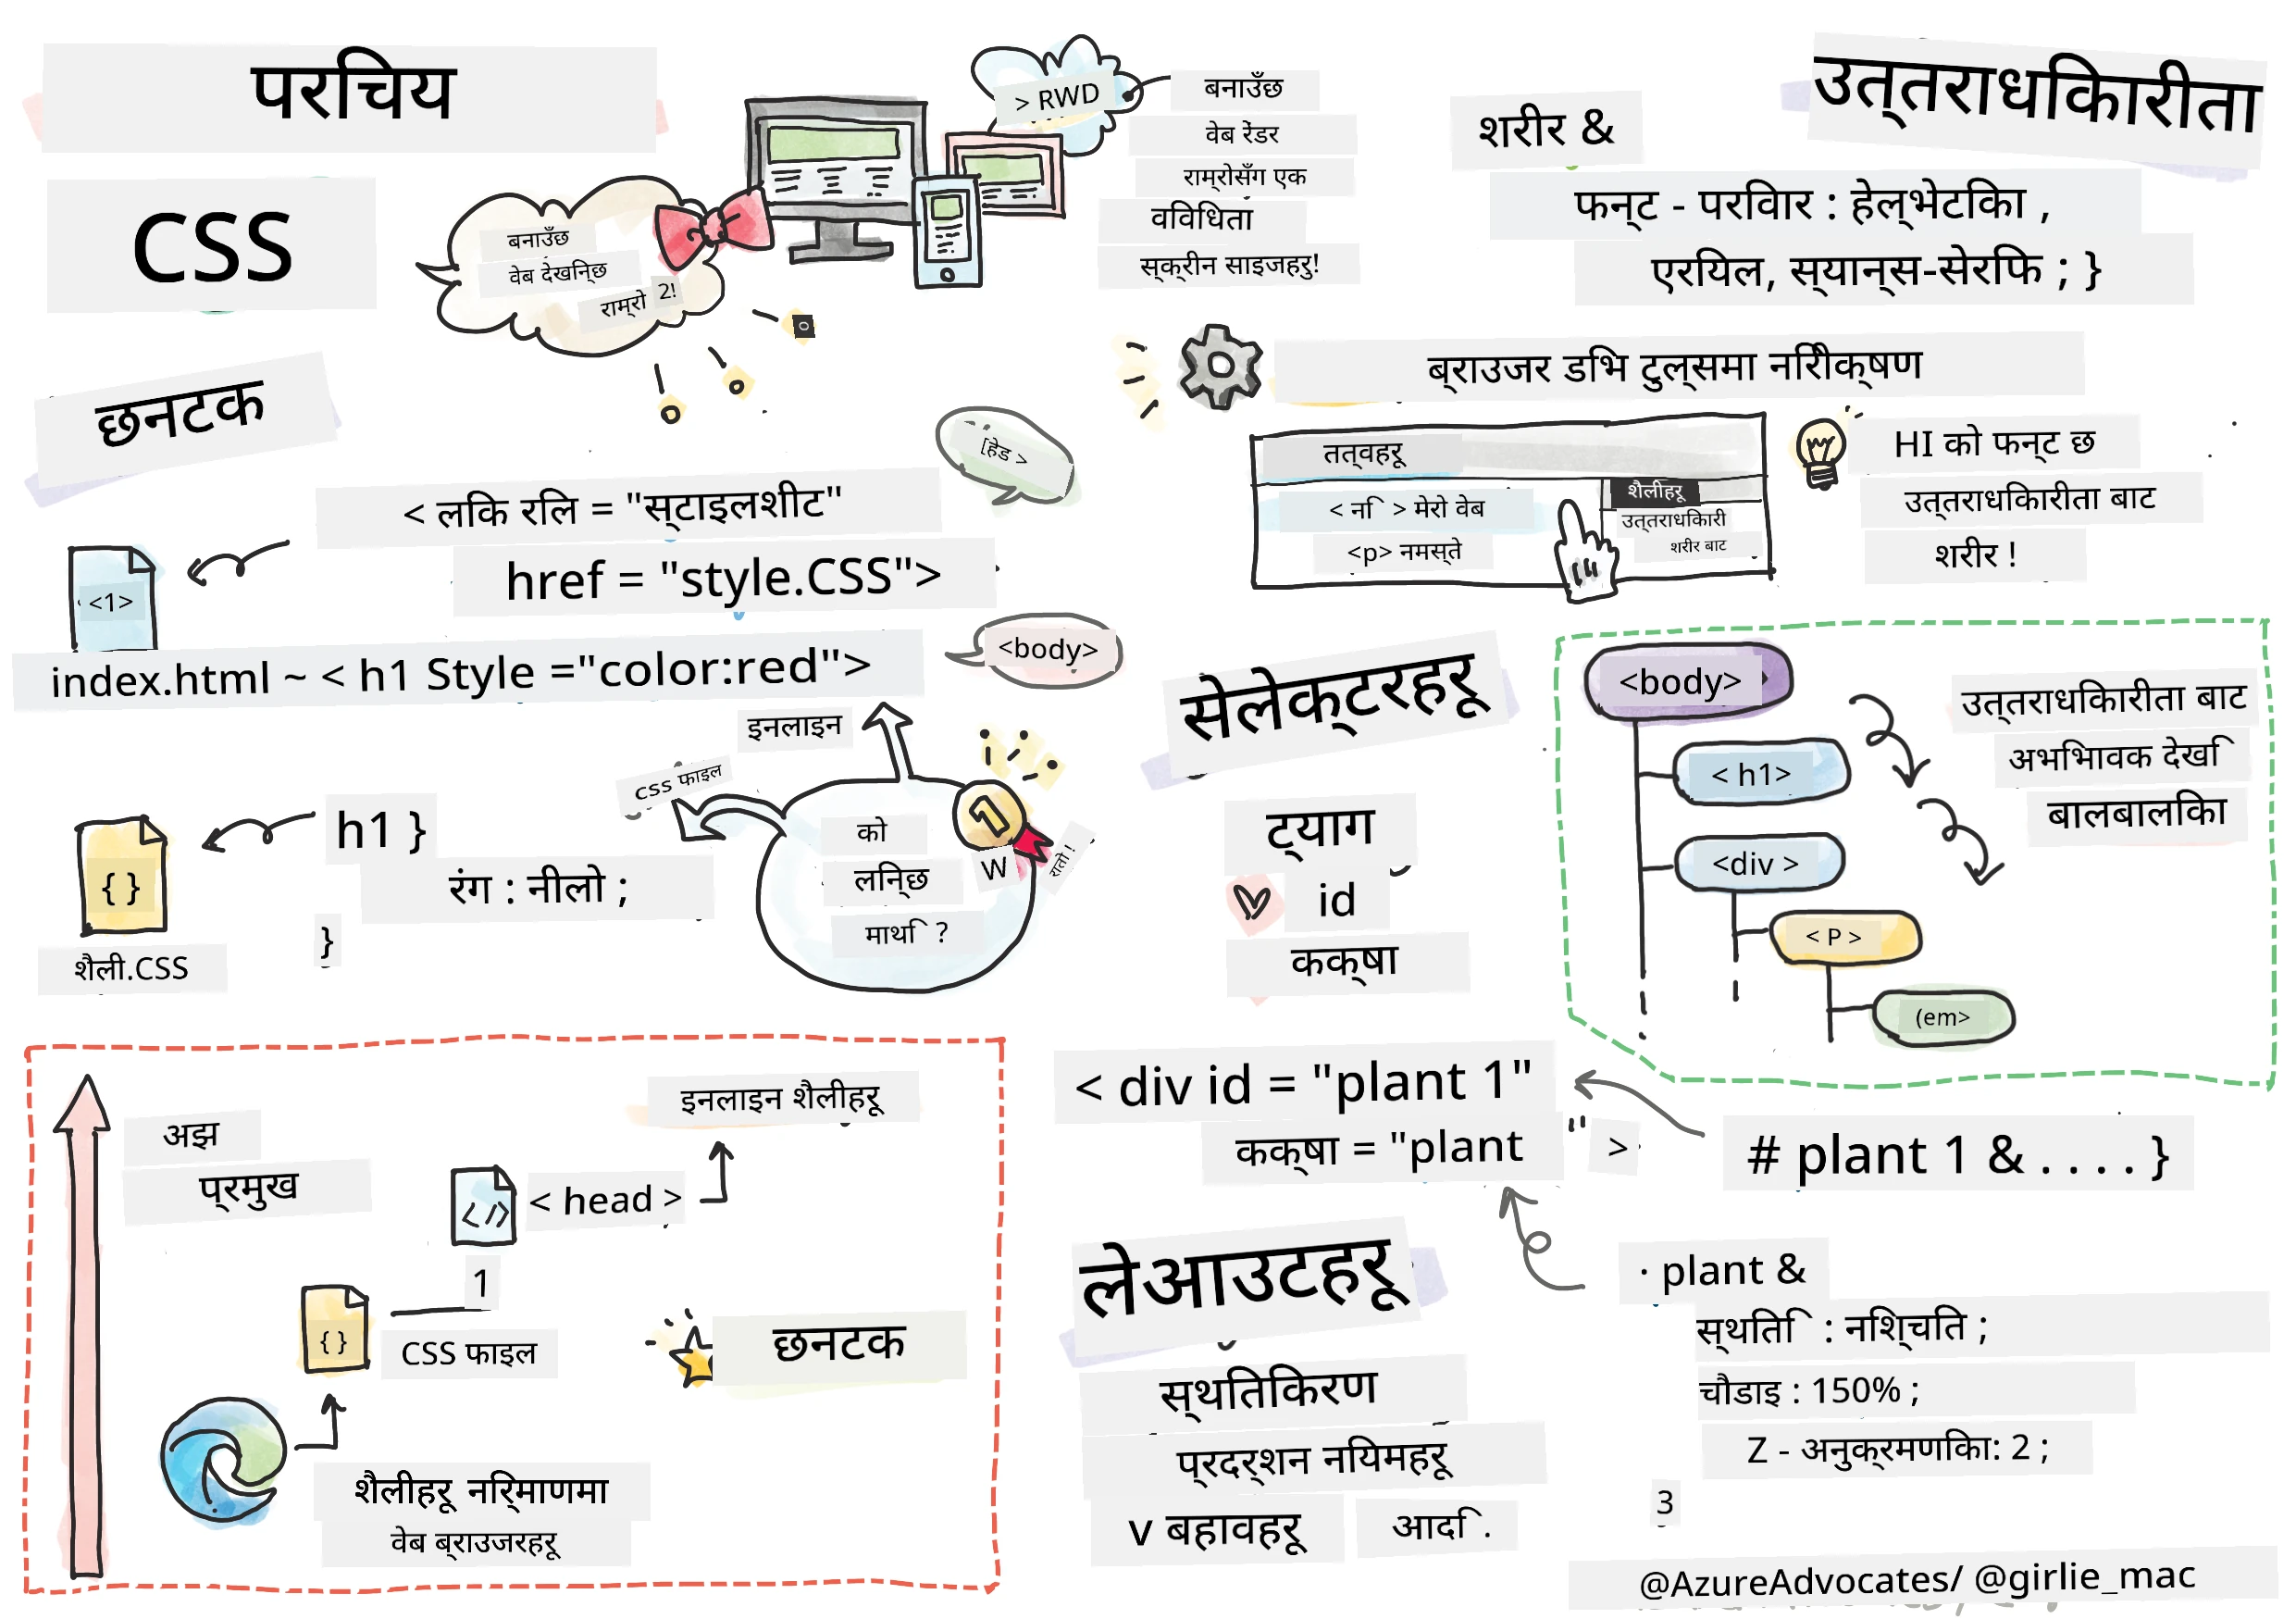 परिचय
CSS
बनाउँछ
वेब देखिन्छ
राम्रो 2!
> RWD
बनाउँछ
वेब रेंडर
राम्रोसँग एक
विविधता
स्क्रीन साइजहरु!
छनटक
< लिंक रिल = "स्टाइलशीट"
href = "style.CSS">
[हेड >
<1>
index.html ~ < h1 Style ="color:red">
<body>
इनलाइन
css फाइल
h1 }
रंग : नीलो ;
}
{ }
शैली.CSS
को
लिन्छ
माथि ?
1
W
रातो !
अझ
प्रमुख
इनलाइन शैलीहरू
</>
< head >
1
{ }
CSS फाइल
छनटक
शैलीहरू निर्माणमा
वेब ब्राउजरहरू
उत्तराधिकारीता
शरीर &
फन्ट - परिवार : हेल्भेटिका ,
एरियल, स्यान्स-सेरिफ ; }
ब्राउजर डिभ टुल्समा निरीक्षण
तत्वहरू
< नि > मेरो वेब
<p> नमस्ते
शैलीहरू
उत्तराधिकारी
शरीर बाट
HI को फन्ट छ
उत्तराधिकारीता बाट
शरीर !
सेलेक्टरहरू
ट्याग
id
कक्षा
<body>
< h1>
<div >
< P >
(em>
उत्तराधिकारीता बाट
अभिभावक देखि
बालबालिका
< div id = "plant 1"
कक्षा = "plant " >
# plant 1 & . . . . }
· plant &
स्थिति : निश्चित ;
चौडाइ : 150% ;
Z - अनुक्रमणिका: 2 ;
3
लेआउटहरू
स्थितिकरण
प्रदर्शन नियमहरू
v बहावहरू आदि.
@AzureAdvocates/ @girlie_mac